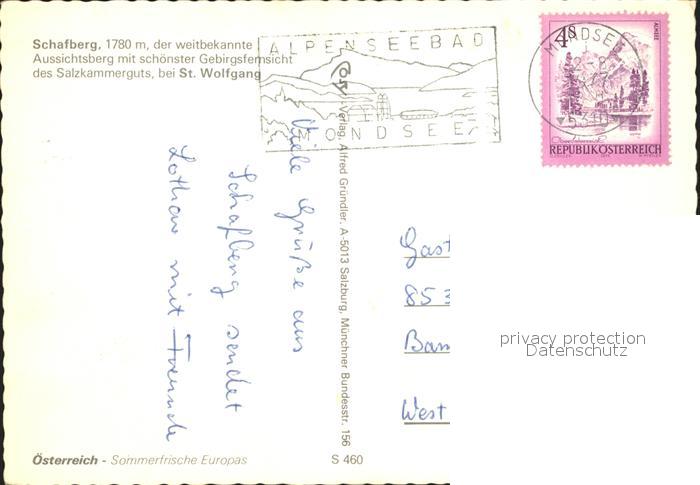 Schafberg, 1780 m, der weitbekannte
Aussichtsberg mit schönster Gebirgsfernsicht
des Salzkammerguts, bei St. Wolfgang
ALPENSEEBAD
MONDSEE
MONDSEE
4S
ALMSEE
REPUBLIK ÖSTERREICH
Viele Grüße aus
Schafberg sendet
Lothar mit Freunde
-Verlag, Alfred Gründler, A-5013 Salzburg, Münchner Bundesstr. 156
Gast
853
Bam
West
privacy protection
Datenschutz
Österreich - Sommerfrische Europas
S 460